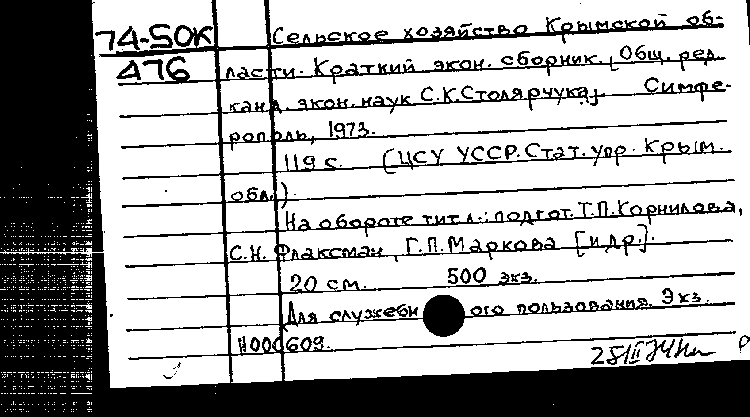 74-50К Сельское хозяйство Крымской об-
476 ласти. Краткий экон. сборник. [Общ. ред.
канд. экон. наук С.К.Столярчука]. Симфе-
рополь, 1973.
119 с. (ЦСУ УССР. Стат. упр. Крым.
обл.).
На обороте тит. л.: подгот. Т.П.Корнилова,
С.Н. Флаксман, Г.П.Маркова [и др.].
20 см. 500 экз.
Для служебного пользования. Экз.
Н000609.